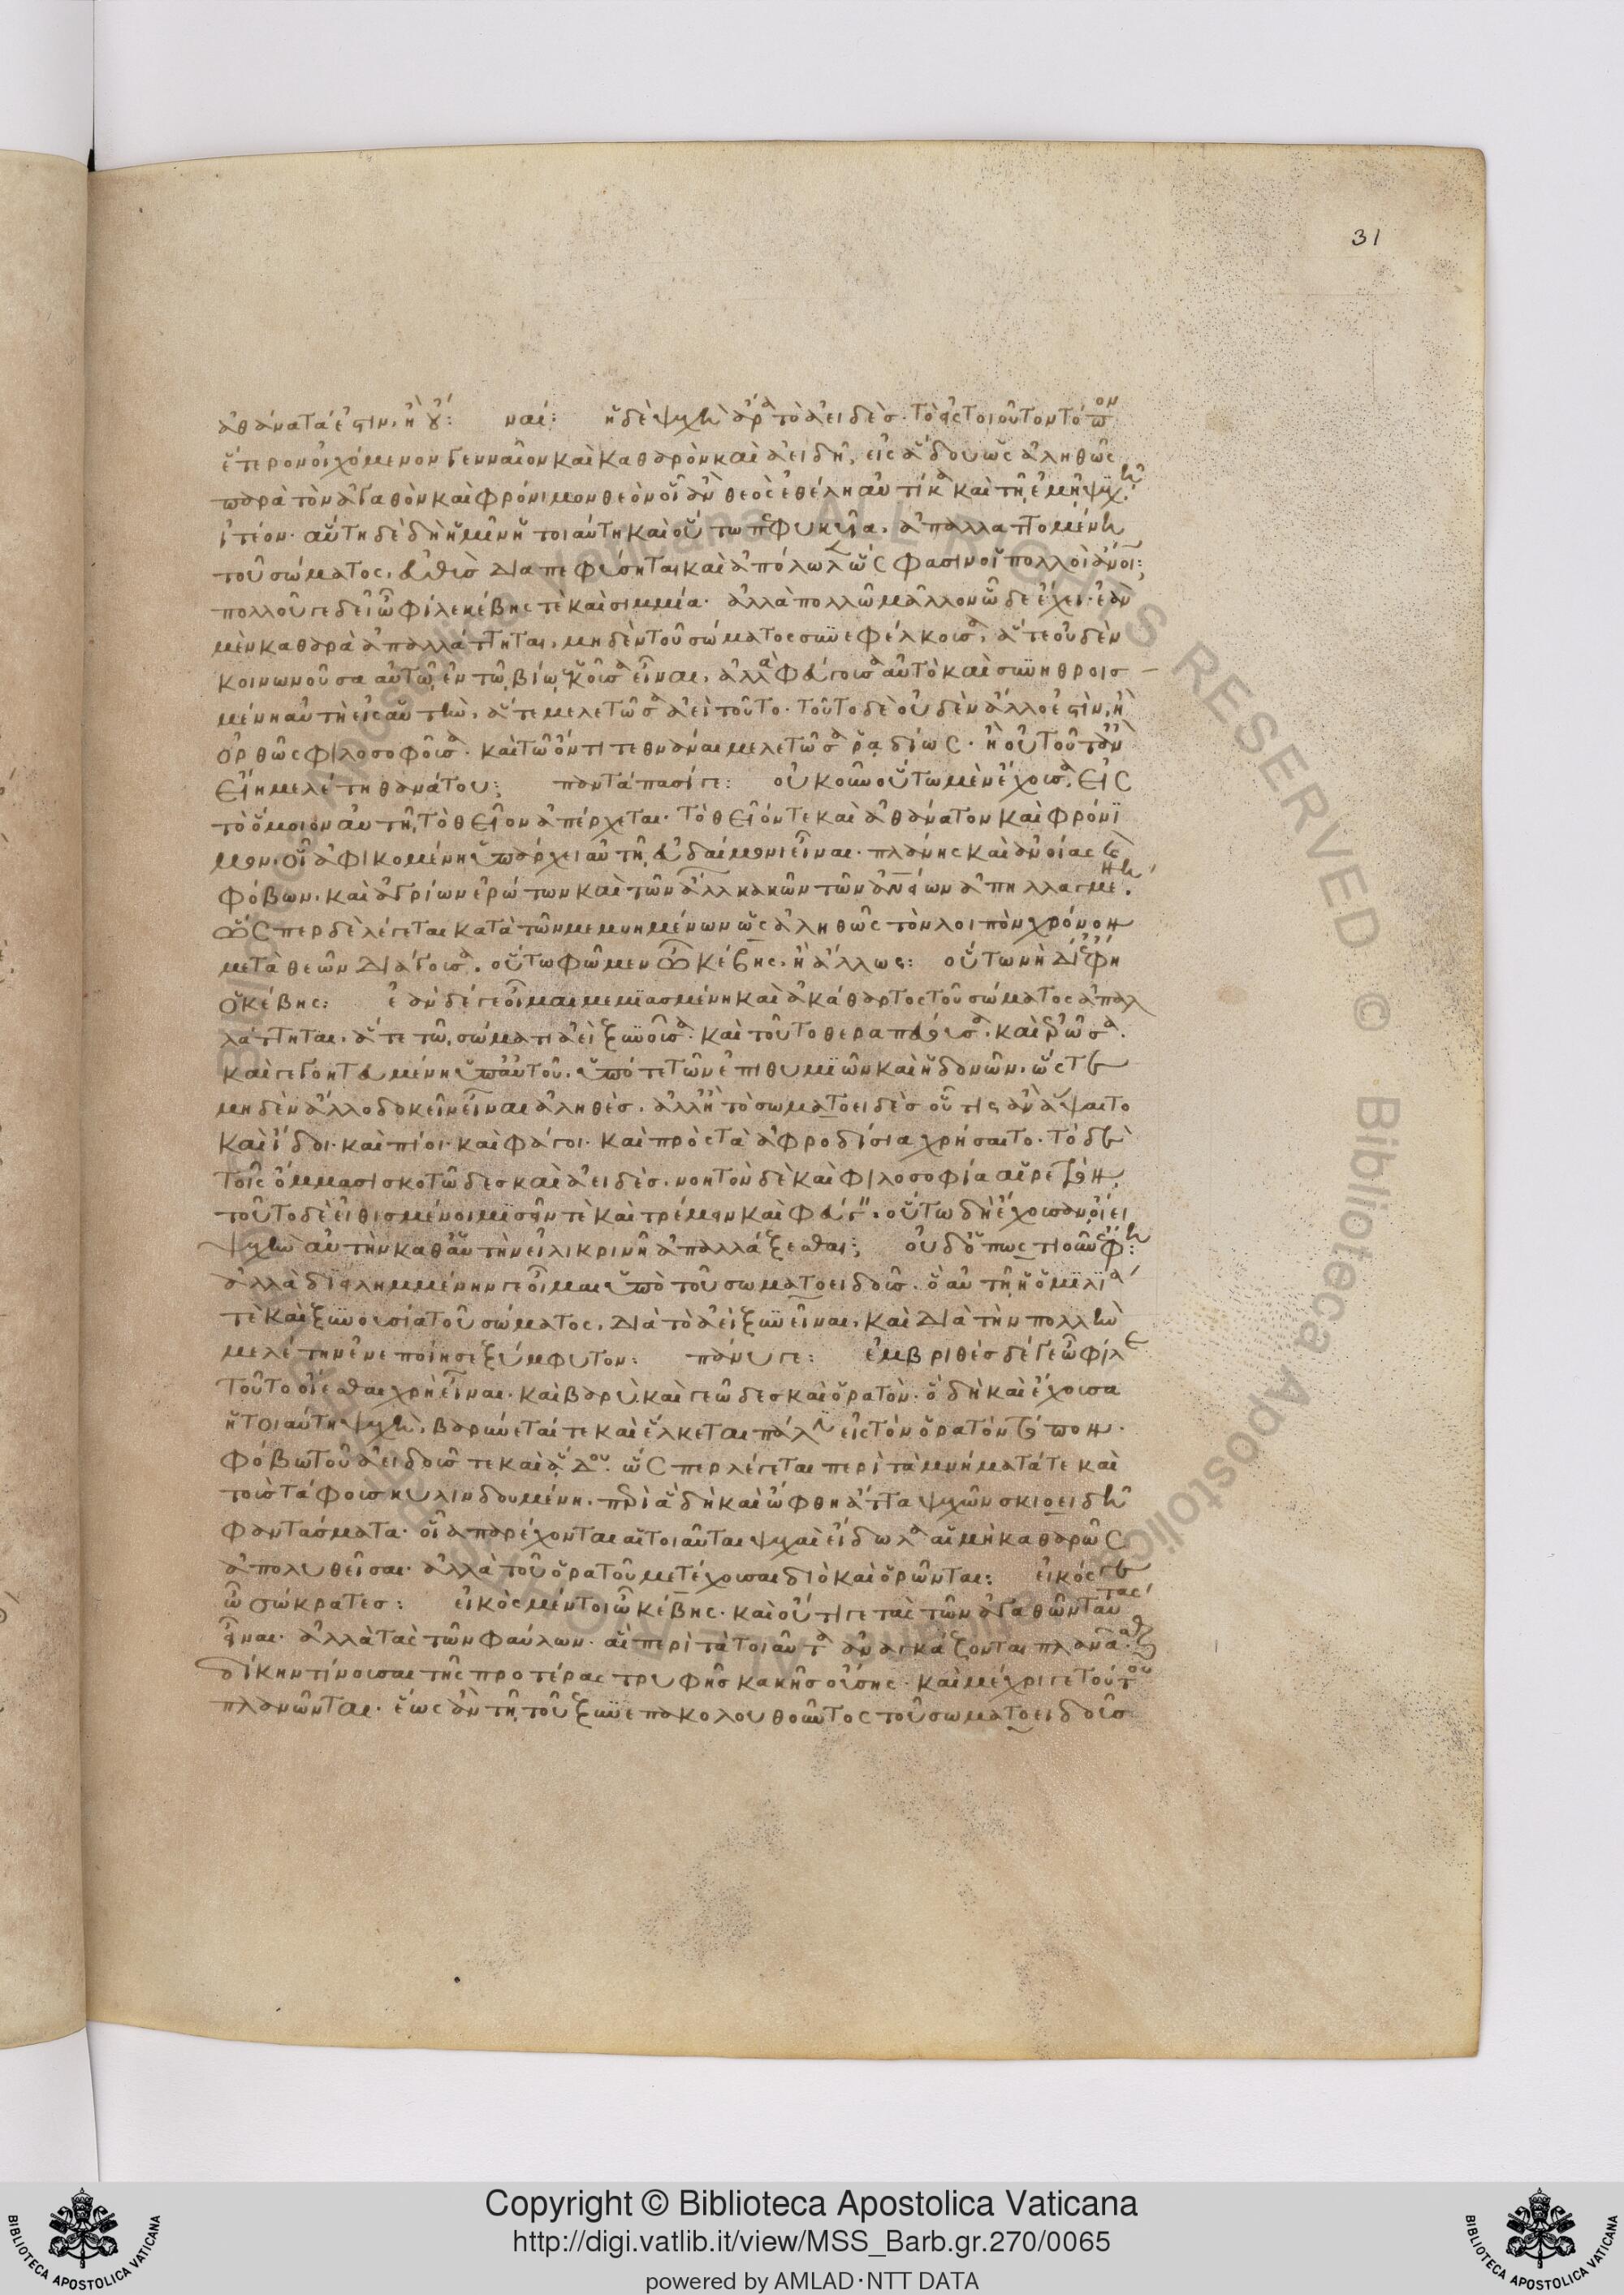 31
ἀθάνατά ἐστιν, ἢ οὔ: ναί: ἡ δὲ ψυχὴ ἄρα τὸ ἀειδὲσ. τὸ εἰς τοιοῦτον τόπον
ἕτερον οἰχόμενον γενναῖον καὶ καθαρὸν καὶ ἀειδῆ, εἰς ἅδου ὡς ἀληθῶς
παρὰ τὸν ἀγαθὸν καὶ φρόνιμον θεὸν οἷ ἂν θεὸς ἐθέλη αὐτίκα καὶ τῆ ἐμῆ ψυχῆ
ἰτέον. αὕτη δὲ δὴ ἡμῖν ἡ τοιαύτη καὶ οὕτω πεφυκυῖα. ἀπαλλαττομένη
τοῦ σώματος, εὐθὺσ διαπεφύσηται καὶ ἀπόλωλεν ὥς φασιν οἱ πολλοὶ ἄνοι;
πολλοῦ γε δεῖ ὦ φίλε κέβης τὲ καὶ σιμμία. ἀλλὰ πολλῶ μᾶλλον ὧδε ἔχει. ἐὰν
μὲν καθαρὰ ἀπαλλάττηται, μηδὲν τοῦ σώματος συνεφέλκουσα, ἅτε οὐδὲν
κοινωνοῦσα αὐτῶ ἐν τῶ βίω ἑκοῦσα εἶναι, ἀλλὰ φεύγουσα αὐτὸ καὶ συνηθροισ
μένη αὐτὴ εἰς αὑτὴν, ἅτε μελετῶσα ἀεὶ τοῦτο. τοῦτο δὲ οὐδὲν ἄλλο ἐστὶν, ἢ
ὀρθῶς φιλοσοφοῦσα. καὶ τῶ ὄντι τεθνάναι μελετῶσα ῥαδίως. ἢ οὐ τοῦτ ἂν
εἴη μελέτη θανάτου; παντάπασί γε: οὐκοῦν οὕτω μὲν ἔχουσα, εἰς
τὸ ὅμοιον αὐτῆ, τὸ θεῖον ἀπέρχεται. τὸ θεῖόν τε καὶ ἀθάνατον καὶ φρόνι
μον. οἷ ἀφικομένη ὑπάρχει αὐτῆ εὐδαίμονι εἶναι. πλάνης καὶ ἀνοίας καὶ
φόβων. καὶ ἀγρίων ἐρώτων καὶ τῶν ἄλλων κακῶν τῶν ἀνων ἀπηλλαγμένη.
ὥσπερ δὲ λέγεται κατὰ τῶν μεμυημένων ὡς ἀληθῶς τὸν λοιπὸν χρόνον
μετὰ θεῶν διάγουσα. οὕτω φῶμεν ὦ κέβης, ἢ ἄλλως: οὕτω νὴ δί ἔφη
ὁ κέβης: ἐὰν δέ γε οἶμαι μεμιασμένη καὶ ἀκάθαρτος τοῦ σώματος ἀπαλ
λάττηται, ἅτε τῶ σώματι ἀεὶ ξυνοῦσα. καὶ τοῦτο θεραπεύουσα. καὶ ἐρῶσα.
καὶ γεγοητευμένη ὑπ αὐτοῦ. ὑπό τε τῶν ἐπιθυμιῶν καὶ ἡδονῶν. ὥστε
μηδὲν ἄλλο δοκεῖν εἶναι ἀληθὲσ. ἀλλ ἢ τὸ σωματοειδὲσ οὗ τις ἂν ἅψαιτο
καὶ ἴδοι. καὶ πίοι. καὶ φάγοι. καὶ πρὸς τὰ ἀφροδίσια χρήσαιτο. τὸ δὲ
τοῖς ὄμμασι σκοτῶδεσ καὶ ἀειδὲσ. νοητὸν δὲ καὶ φιλοσοφία αἱρετόν,
τοῦτο δὲ εἰθισμένοι μισεῖν τὲ καὶ τρέμειν καὶ φεύγειν. οὕτω δὴ ἔχουσαν οἴει
ψυχὴν αὐτὴν καθ αὑτὴν εἰλικρινῆ ἀπαλλάξεσθαι; οὐδ ὁπωςτιοῦν ἔφη:
ἀλλὰ διειλημμένην γε οἶμαι ὑπὸ τοῦ σωματοειδοῦσ. ὃ αὐτῆ ἡ ὁμιλία
τὲ καὶ ξυνουσία τοῦ σώματος, διὰ τὸ ἀεὶ ξυνεῖναι, καὶ διὰ τὴν πολλὴν
μελέτην ἐνεποίησε ξύμφυτον: πάνυ γε: ἐμβριθὲσ δέ γε ὦ φίλε
τοῦτο οἴεσθαι χρὴ εἶναι. καὶ βαρὺ. καὶ γεῶδεσ καὶ ὁρατὸν. ὃ δὴ καὶ ἔχουσα
ἡ τοιαύτη ψυχὴ, βαρύνεταί τε καὶ ἕλκεται πάλιν εἰς τὸν ὁρατὸν τόπον.
φόβω τοῦ ἀειδοῦσ τε καὶ ἅδου. ὥσπερ λέγεται περὶ τὰ μνήματά τε καὶ
τοὺσ τάφουσ κυλινδουμένη. περὶ ἃ δὴ καὶ ὤφθη ἄττα ψυχῶν σκιοειδῆ
φαντάσματα. οἷα παρέχονται αἱ τοιαῦται ψυχαὶ εἴδωλα αἱ μὴ καθαρῶς
ἀπολυθεῖσαι. ἀλλὰ τοῦ ὁρατοῦ μετέχουσαι διὸ καὶ ὁρῶνται: εἰκός γε
ὦ σώκρατεσ: εἰκὸς μέντοι ὦ κέβης. καὶ οὔ τι γε τὰς τῶν ἀγαθῶν ταύτας
εἶναι. ἀλλὰ τὰς τῶν φαύλων. αἳ περὶ τὰ τοιαῦτα ἀναγκάζονται πλανᾶσθαι.
δίκην τίνουσαι τῆς προτέρας τρυφῆσ κακῆσ οὔσης. καὶ μέχρι γε τούτου
πλανῶνται. ἕως ἂν τῆ τοῦ ξυνεπακολουθοῦντος τοῦ σωματοειδοῦσ
Copyright © Biblioteca Apostolica Vaticana
http://digi.vatlib.it/view/MSS_Barb.gr.270/0065
powered by AMLAD·NTT DATA